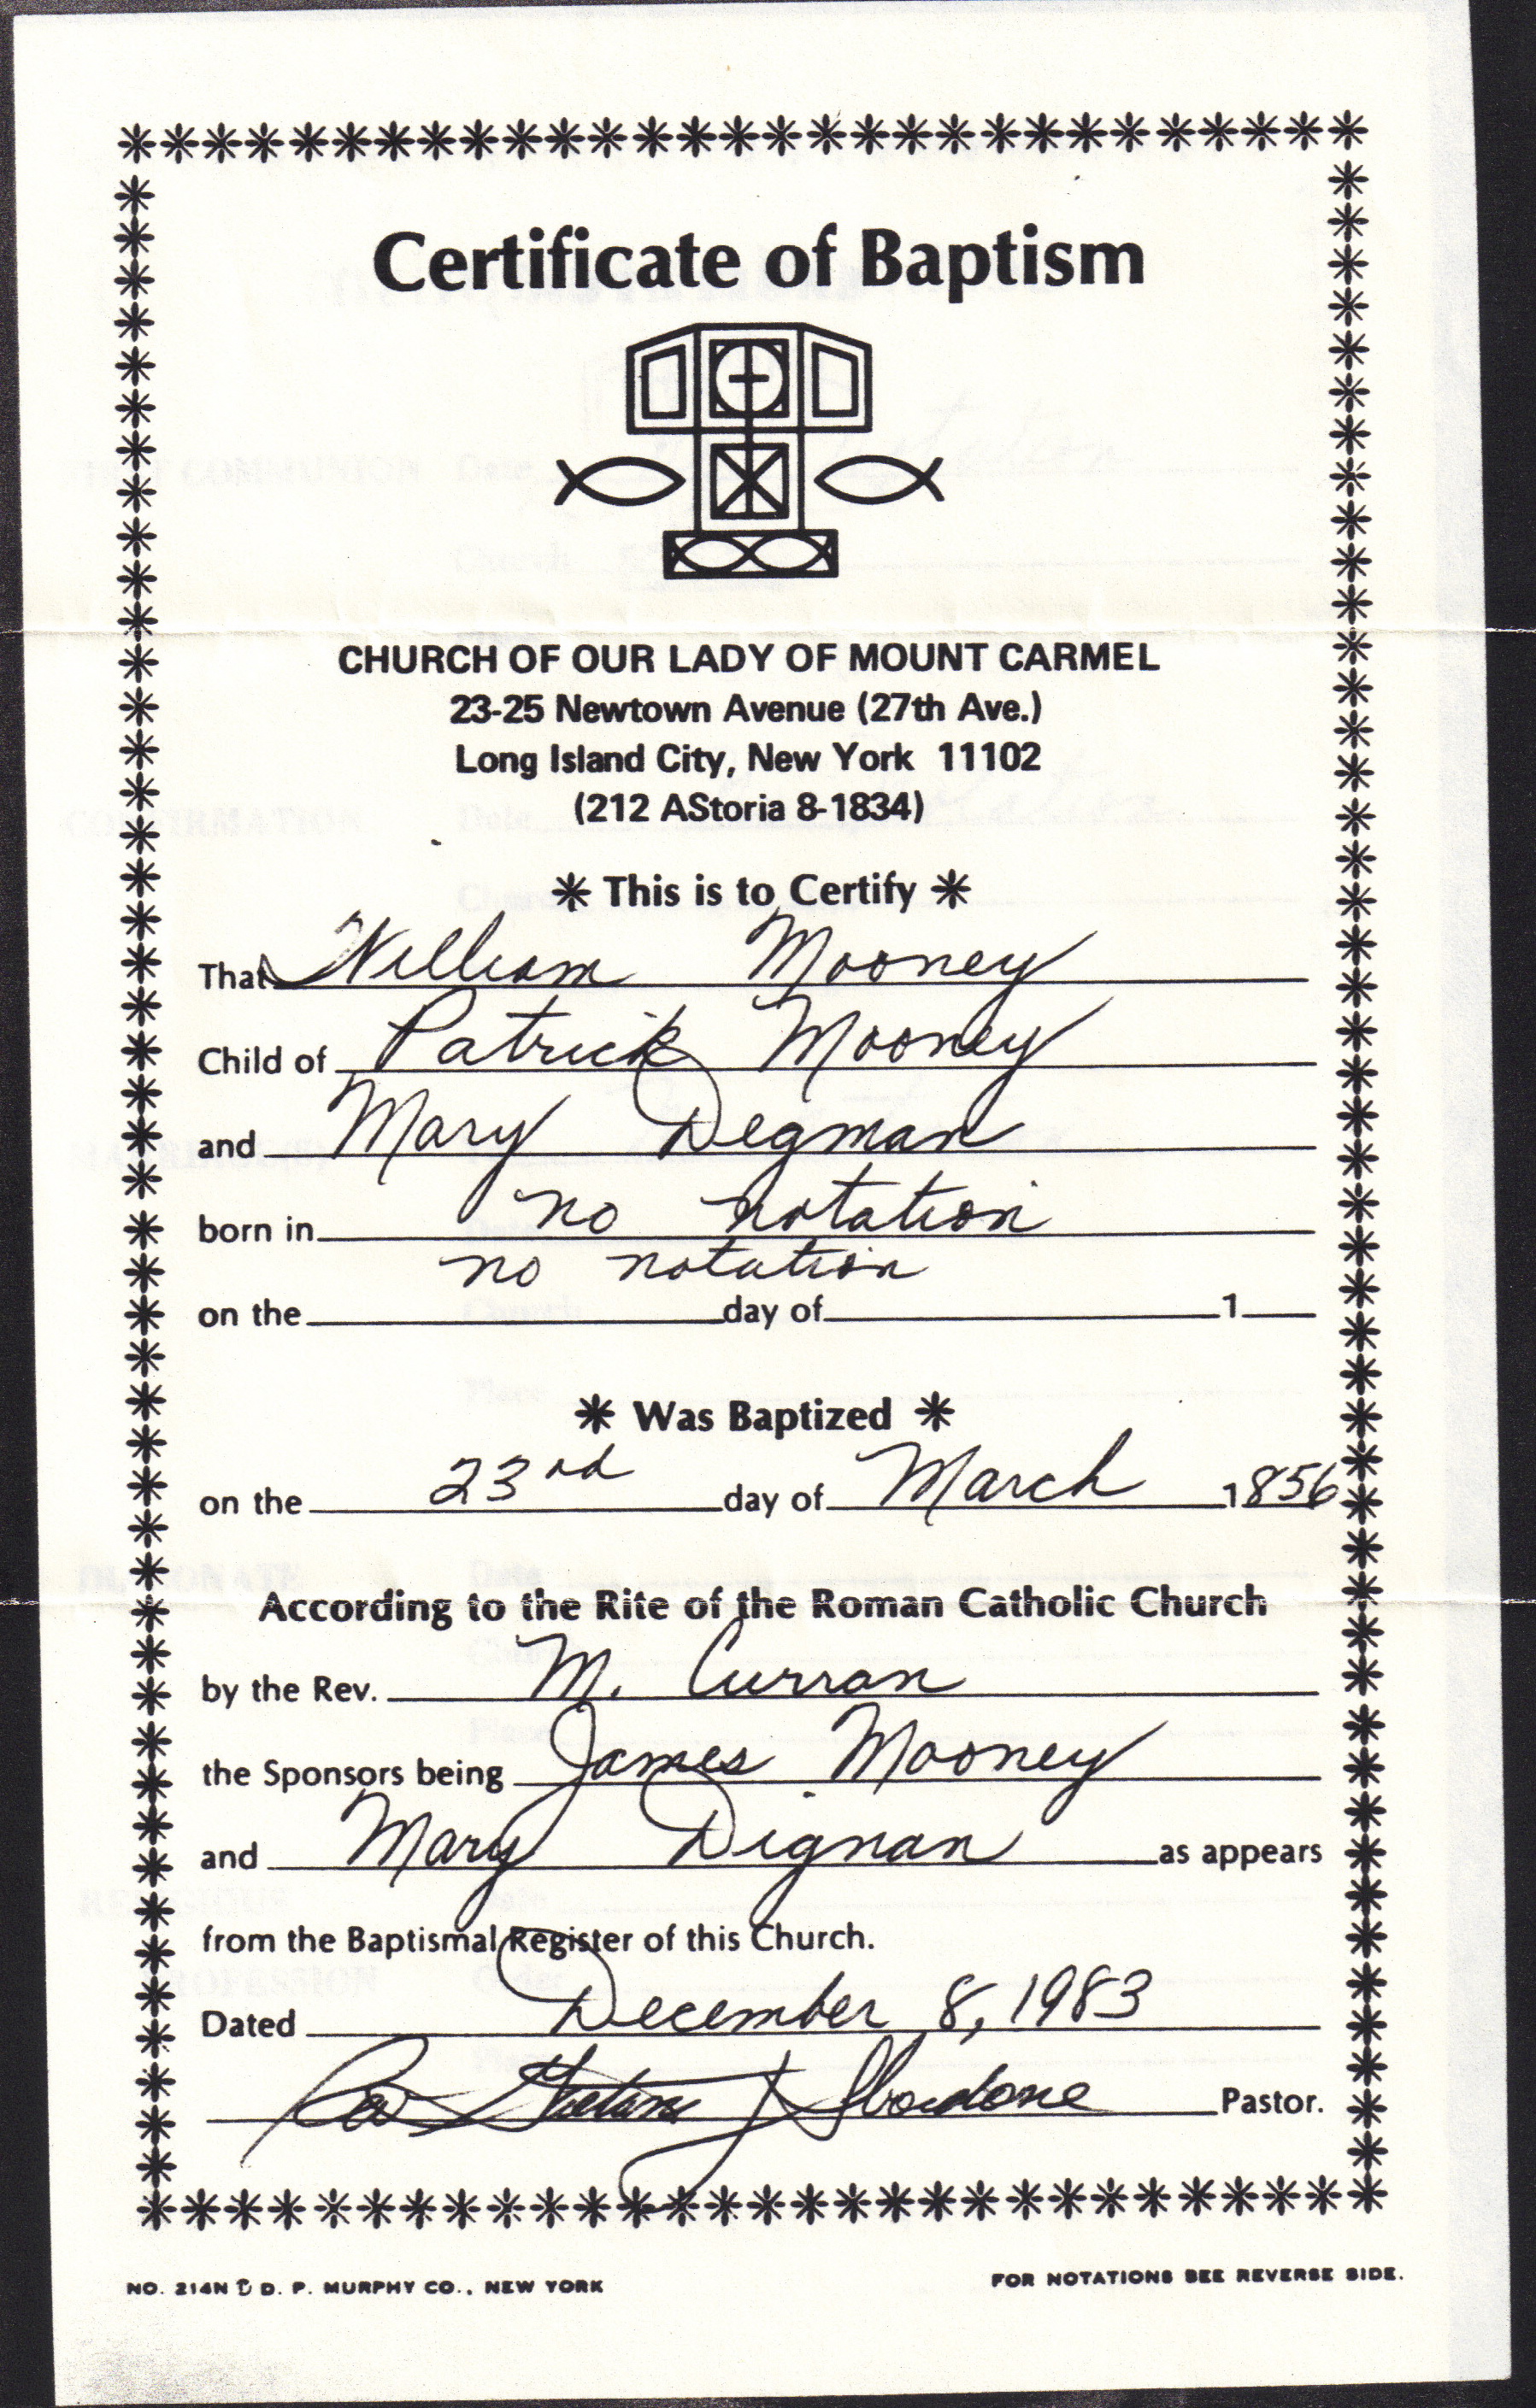 Certificate of Baptism
CHURCH OF OUR LADY OF MOUNT CARMEL
23-25 Newtown Avenue (27th Ave.)
Long Island City, New York 11102
(212 AStoria 8-1834)
This is to Certify
That William Mooney
Child of Patrick Mooney
and Mary Degman
born in no notation
no notation
on the day of 1
Was Baptized
on the 23rd day of March 1856
According to the Rite of the Roman Catholic Church
by the Rev. M. Curran
the Sponsors being James Mooney
and Mary Dignan as appears
from the Baptismal Register of this Church.
Dated December 8, 1983
J Pastor.
NO. 214N D. P. MURPHY CO., NEW YORK
FOR NOTATIONS SEE REVERSE SIDE.